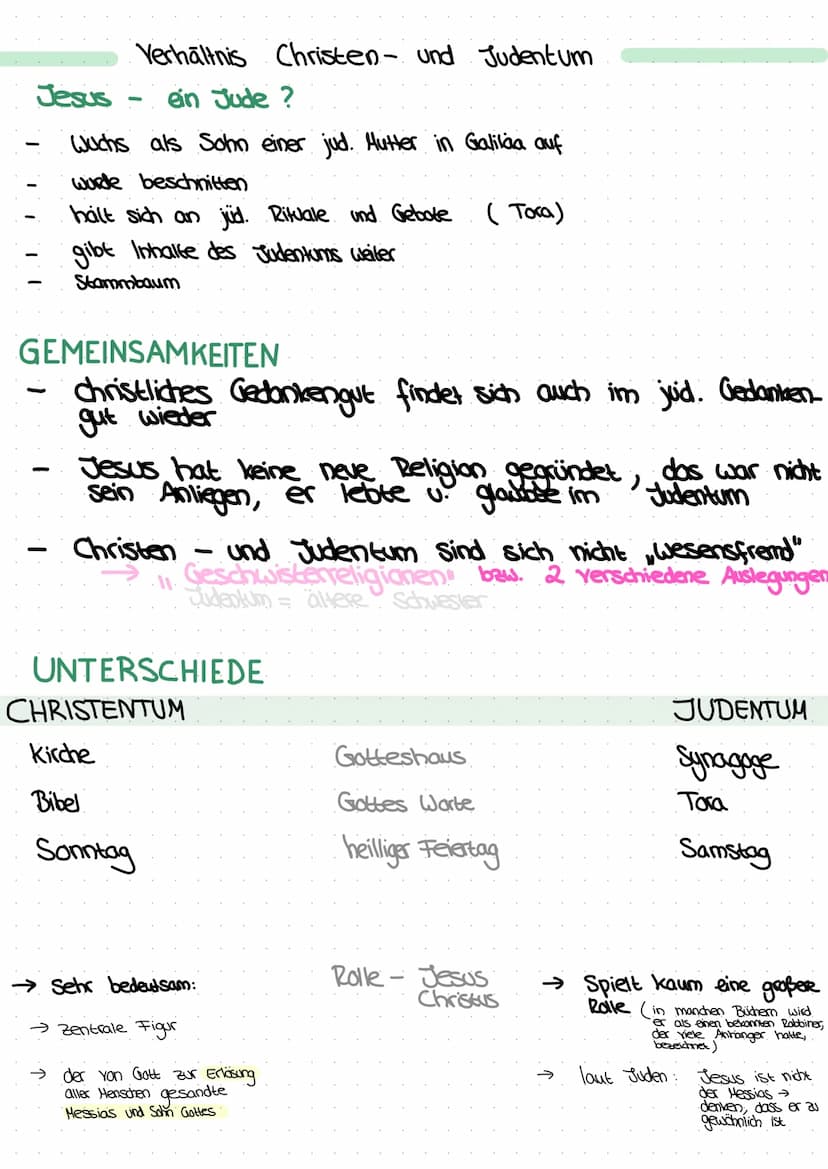 Verhältnis Christen- und Judentum
Jesus - ein Jude?
- wuchs als Sohn einer jüd. Mutter in Galiläa auf
- wurde beschnitten
- hält sich an jüd. Rituale und Gebote (Tora)
- gibt Inhalte des Judentums weiter
- Stammbaum
GEMEINSAMKEITEN
- christliches Gedankengut findet sich auch im jüd. Gedanken-
gut wieder
- Jesus hat keine neue Religion gegründet, das war nicht
sein Anliegen, er lebte u. glaubte im Judentum
- Christen - und Judentum sind sich nicht „wesensfremd"
→ „Geschwisterreligionen" bzw. 2 verschiedene Auslegungen
Judentum = ältere Schwester
UNTERSCHIEDE
CHRISTENTUM JUDENTUM
Kirche Gotteshaus Synagoge
Bibel Gottes Worte Tora
Sonntag heilliger Feiertag Samstag
→ Sehr bedeutsam: Rolle - Jesus → Spielt kaum eine großere
Christus Rolle (in manchen Büchern wird
→ zentrale Figur er als einen bekannten Rabbiner,
der viele Anhänger hatte,
bezeichnet)
→ der von Gott zur Erlösung → laut Juden: Jesus ist nicht
aller Menschen gesandte der Messias →
Messias und Sohn Gottes denken, dass er zu
gewöhnlich ist